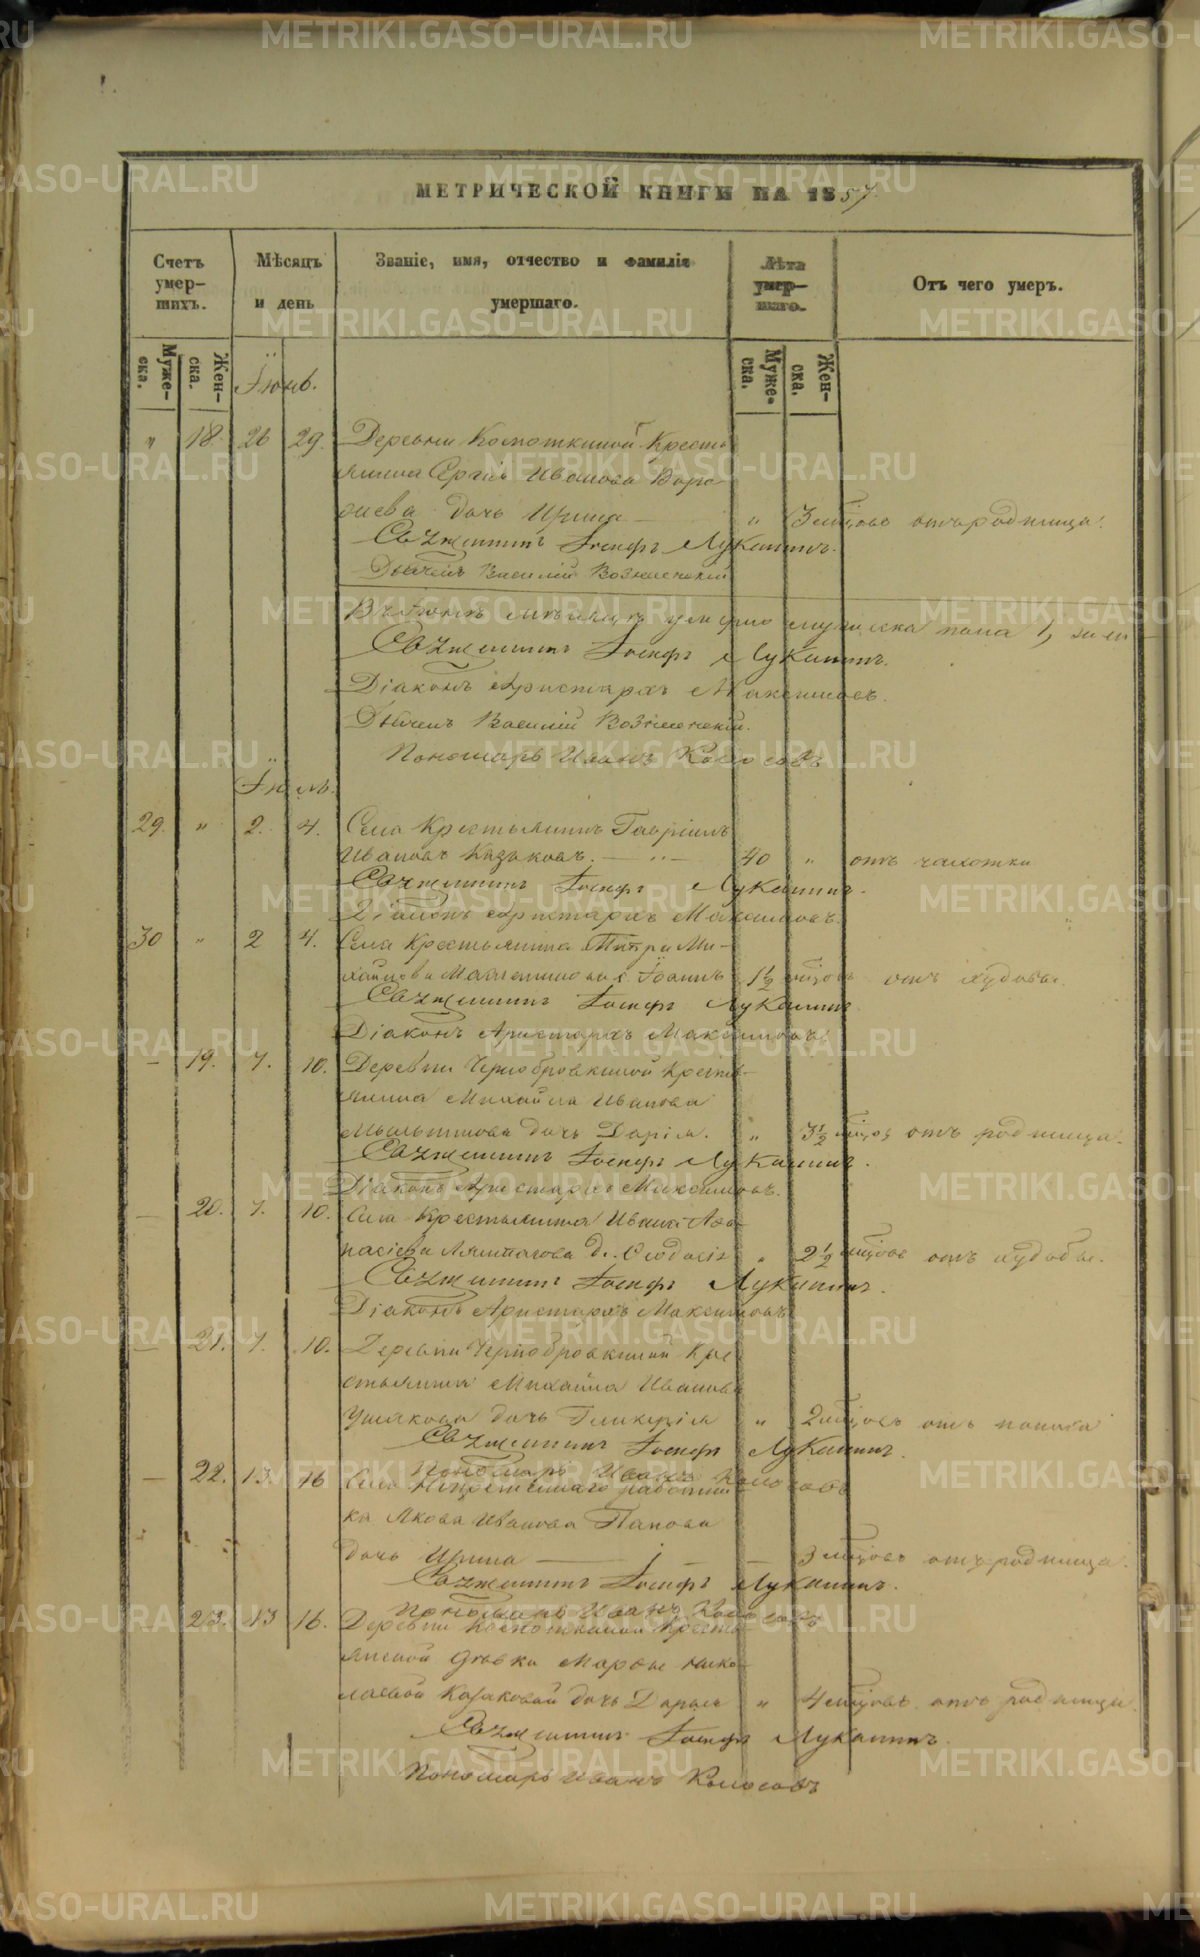 МЕТРИЧЕСКОЙ КНИГИ НА 1857.
Счетъ умер- шихъ.
Мѣсяцъ и день
Званіе, имя, отчество и фамилія умершаго.
Лѣта умер- шаго.
Отъ чего умеръ.
Муже- ска.
Жен- ска.
Муже- ска.
Жен- ска.
Іюнь.
" 18. 26 29. Деревни Космоткиной Кресть
янина Сергія Иванова
дочь Ирина — " 3 мѣсцовъ отъ родимца.
Священникъ Іосифъ Лукинъ.
Дьячекъ Василій Вознесенскій
Въ Іюнѣ мѣсяцѣ умерло мужеска пола 1, жен
Священникъ Іосифъ Лукинъ.
Діаконъ Аристархъ Максимовъ.
Дьячекъ Василій Вознесенскій.
Пономарь Иванъ Колосовъ
Іюль.
29. " 2. 4. Села Крестьянинъ Гавріилъ
Ивановъ Казаковъ. — " — 40 " отъ чахотки
Священникъ Іосифъ Лукинъ.
Діаконъ Аристархъ Максимовъ.
30 " 2 4. Села Крестьянина Ми-
хайлова Іоаннъ 1½ отъ худобы.
Священникъ Іосифъ Лукинъ
Діаконъ Аристархъ Максимовъ.
— 19. 7. 10. Деревни Чернобровкиной Кресть-
янина Михайла Иванова
дочь Дарія. " 3½ мѣсцов отъ родимца.
Священникъ Іосифъ Лукинъ.
Діаконъ Аристархъ Максимовъ.
— 20. 7. 10. Села Крестьянина Ивана Афа-
насіева д. Феодосія " 2½ мѣсцовъ отъ худобы.
Священникъ Іосифъ Лукинъ.
Діаконъ Аристархъ Максимовъ
— 21. 7. 10. Деревни Чернобровкиной Кре
стьянина Михайла Иванова
Ушакова дочь Гликерія " 2 мѣсцовъ отъ поноса
Священникъ Іосифъ Лукинъ.
Пономарь Иванъ Колосовъ
— 22. 13 16 Села Непремѣннаго работни
ка Якова Иванова Панова
дочь Ирина — 3 мѣсцовъ отъ родимца.
Священникъ Іосифъ Лукинъ.
Пономарь Иванъ Колосовъ
23. 13 16. Деревни Космоткиной Кресть-
янской дѣвки Марфы Нико-
лаевой Казаковой дочь Дарья " 4 мѣсцовъ отъ родимца
Священникъ Іосифъ Лукинъ.
Пономарь Иванъ Колосовъ
METRIKI.GASO-URAL.RU